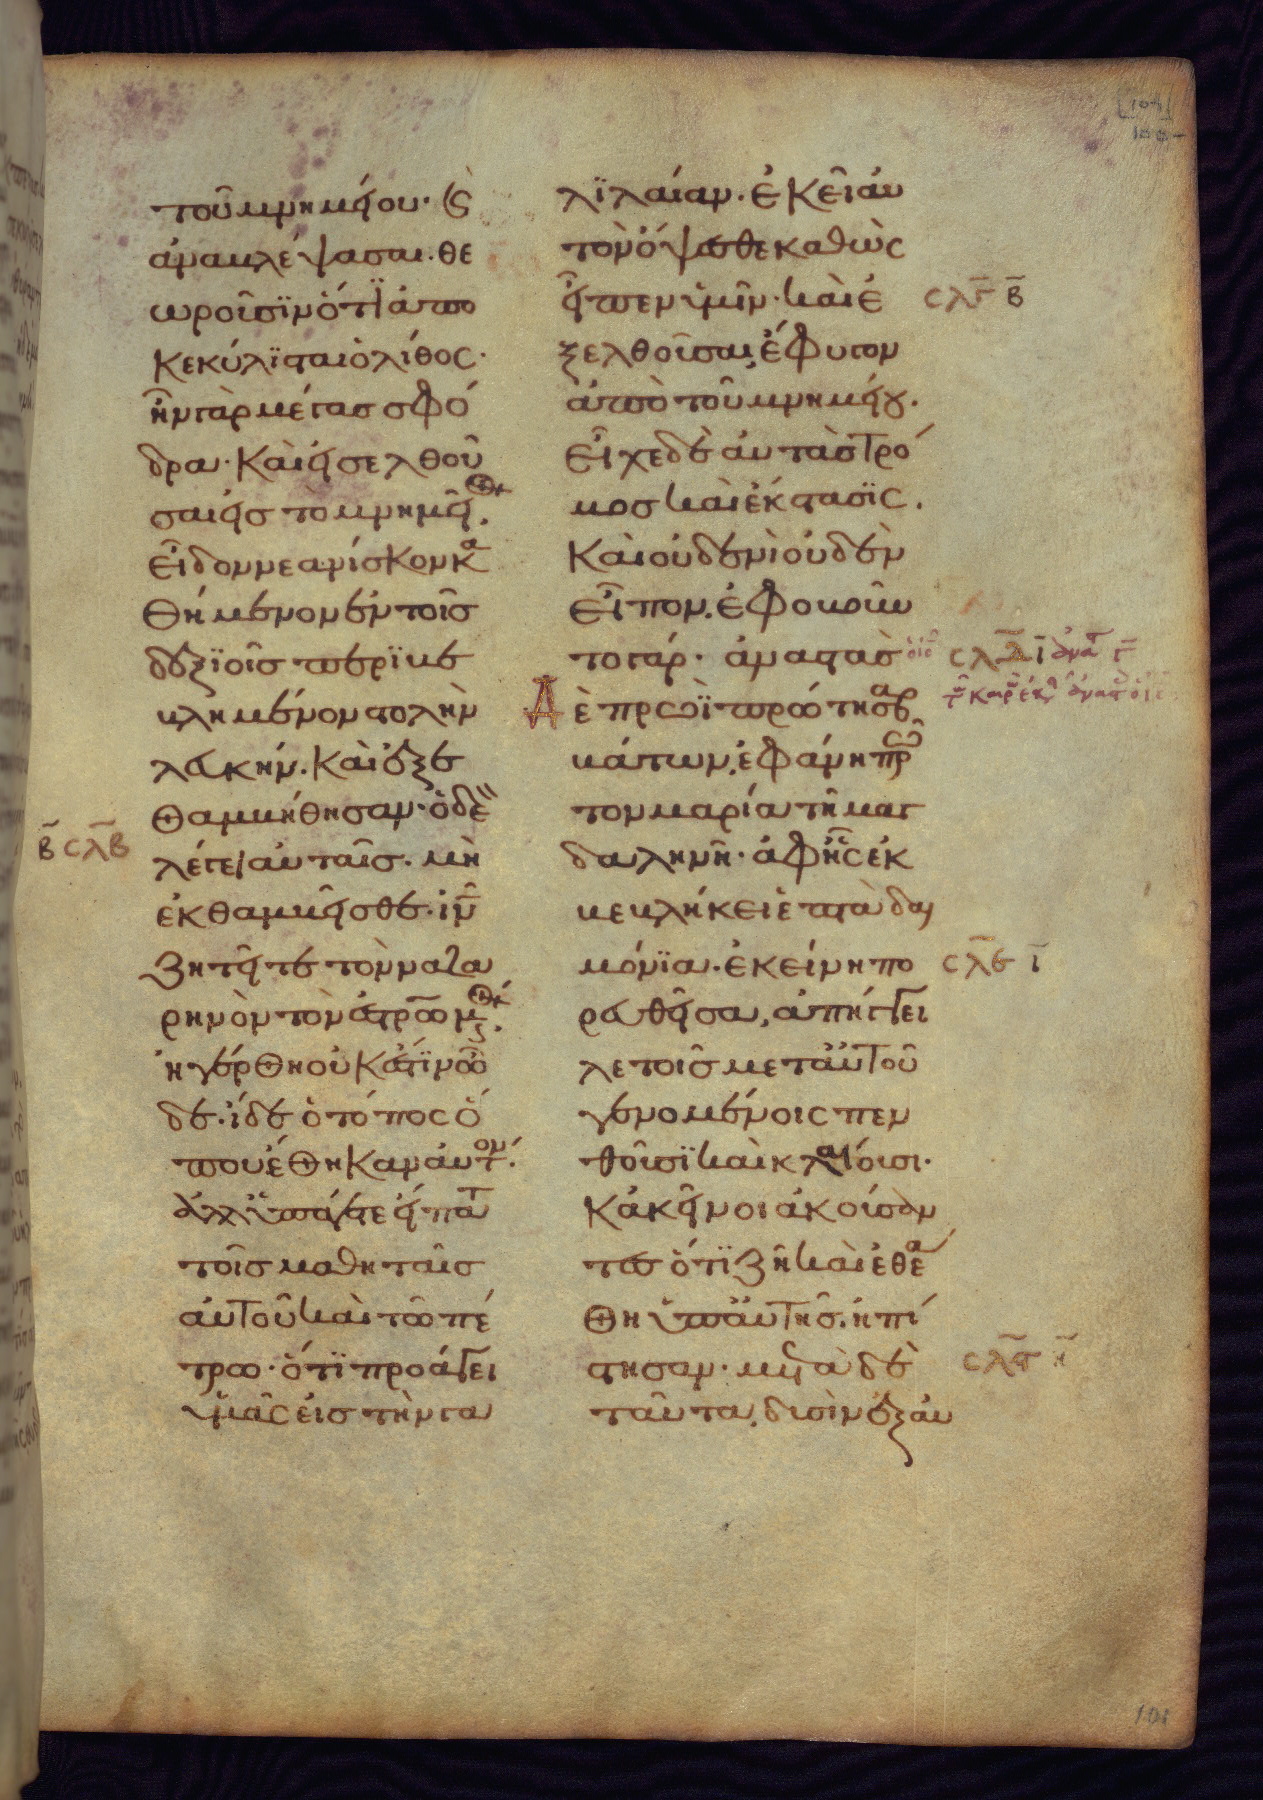 τοῦ μνημείου· ϛ
ἀναβλέψασαι· θε
ωροῦσϊν ὅτϊ ἀπο
κεκύλϊσται ὁ λίθος·
ἦν γὰρ μέγασ σφό
δρα· Καὶ εἰσελθοῦ
σαι εἰσ τὸ μνημεῖ.
εἶδον νεανίσκον κα
θήμενον ἐν τοῖσ
δεξϊοῖσ περϊβε
βλημένον στολὴν
λευκήν. Καὶ ἐξε
θαμβήθησαν· ὁ δὲ
λέγει αὐταῖσ. μὴ
ἐκθαμβεῖσθε· ἰν
ζητεῖτε τὸν ναζα
ρηνὸν τὸν ἐστρωμ.
ἠγέρθη οὐκ ἔστϊν ὧ
δε· ἴδε ὁ τόπος ὅ
που ἔθηκαν αὐτον·
ἀλλ' ὑπάγετε εἴπατ
τοῖσ μαθηταῖσ
αὐτοῦ καὶ τῶ πέ
τρω· ὅτϊ προάγει
ὑμᾶς εἰσ τὴν γα
λϊλαίαν· ἐκεῖ αὐ
τὸν ὄψεσθε καθὼς
εἶπεν ὑμῖν· καὶ ἐ
ξελθοῦσαι, ἔφυγον
ἀπὸ τοῦ μνημείου.
εἶχε δὲ αὐτὰσ τρό
μοσ καὶ ἔκστασϊς.
Καὶ οὐδενὶ οὐδὲν
εἶπον, ἐφοβοῦν
το γάρ· ἀναστὰσ
Δὲ πρωῒ πρώτησ
βάτων, ἐφάνη πρ
τον μαρία τῆ μαγ
δαληνῆ· ἀφ' ἧς ἐκ
βεβλήκει ἑπτὰ δαι
μόνϊα· ἐκείνη πο
ρευθεῖσα, ἀπήγγει
λε τοῖσ μετ' αὐτοῦ
γενομένοις πεν
θοῦσϊ καὶ κλαίουσι·
Κἀκεῖνοι ἀκούσαν
τεσ ὅτϊ ζῆ καὶ ἐθεα
θη ὑπ' αὐτῆσ. ἠπί
στησαν· μετὰ δὲ
ταῦτα, δυσὶν ἐξ αὐ
ϲλβ β
ϲλγ β
ϲλδ ϊ
ϲλε ϊ
ϲλϛ η
101